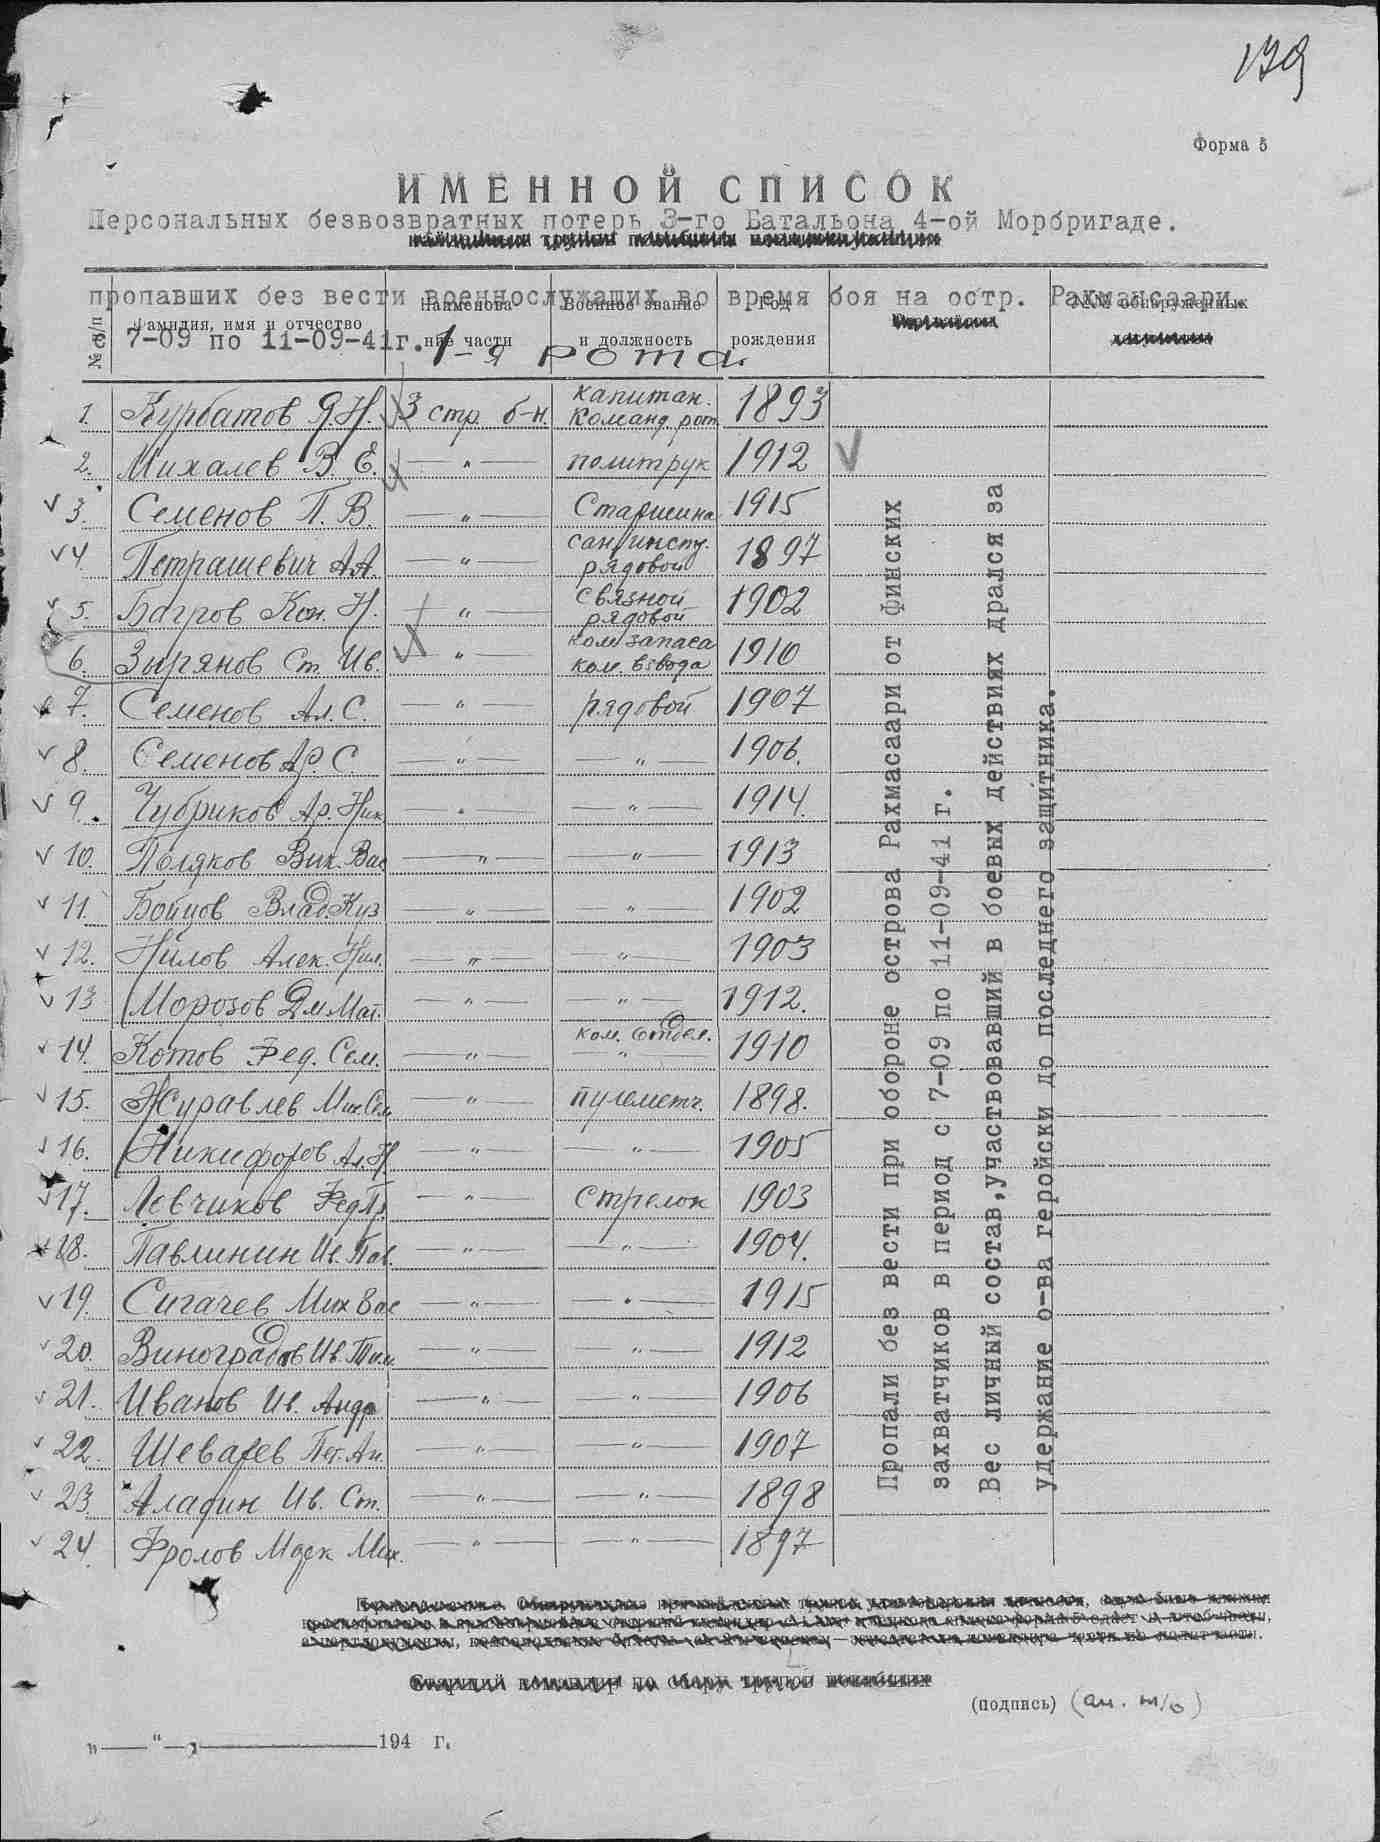 179
Форма 5
ИМЕННОЙ СПИСОК
Персональных безвозвратных потерь 3-го Батальона 4-ой Морбригаде.
пропавших без вести военнослужащих во время боя на остр. Рахмансаари.
№№ п/п
Фамилия, имя и отчество
Наименова-
ние части
Военное звание
и должность
Год
рождения
№№ обнаруженных
с 7-09 по 11-09-41г. 1-я рота.
1. Курбатов Я.Н. 3 стр. б-н. капитан. Команд. рот. 1893
2. Михалев В. Е. —"— политрук 1912
3. Семенов П. В. —"— Старшина 1915
4. Петрашевич А.А. —"— сан/инстр. рядовой 1897
5. Багров Кон. Н. —"— Связной рядовой 1902
6. Зырянов Ст. Ив. —"— ком запаса ком. взвода 1910
7. Семенов Ал. С. —"— рядовой 1907
8. Семенов Ар. С. —"— —"— 1906.
9. Чубриков Ар. Ник. —"— —"— 1914.
10. Поляков Вик. Вас —"— —"— 1913
11. Бойцов Влад. Куз —"— —"— 1902
12. Нилов Алек. Нил. —"— —"— 1903
13 Морозов Дм Мат. —"— —"— 1912.
14. Котов Фед. Сем. —"— ком. отдел. —"— 1910
15. Журавлев Мих. Сем —"— пулеметч. 1898.
16. Никифоров Ал. Н. —"— —"— 1905
17. Левчиков Фед. Пр. —"— Стрелок 1903
18. Павлинин Ив. Пав. —"— —"— 1904.
19. Сигачев Мих Вас —"— —"— 1915
20. Виноградов Ив. Тим. —"— —"— 1912
21. Иванов Ив. Андр —"— —"— 1906
22. Шеварев Пет. Ан. —"— —"— 1907
23. Аладин Ив. Ст. —"— —"— 1898
24. Фролов Марк Мих. —"— —"— 1897
Пропали без вести при обороне острова Рахмасаари от финских
захватчиков в период с 7-09 по 11-09-41 г.
Вес личный состав,участвовавший в боевых действиях дрался за
удержание о-ва геройски до последнего защитника.
(подпись)
"——"——194 г.